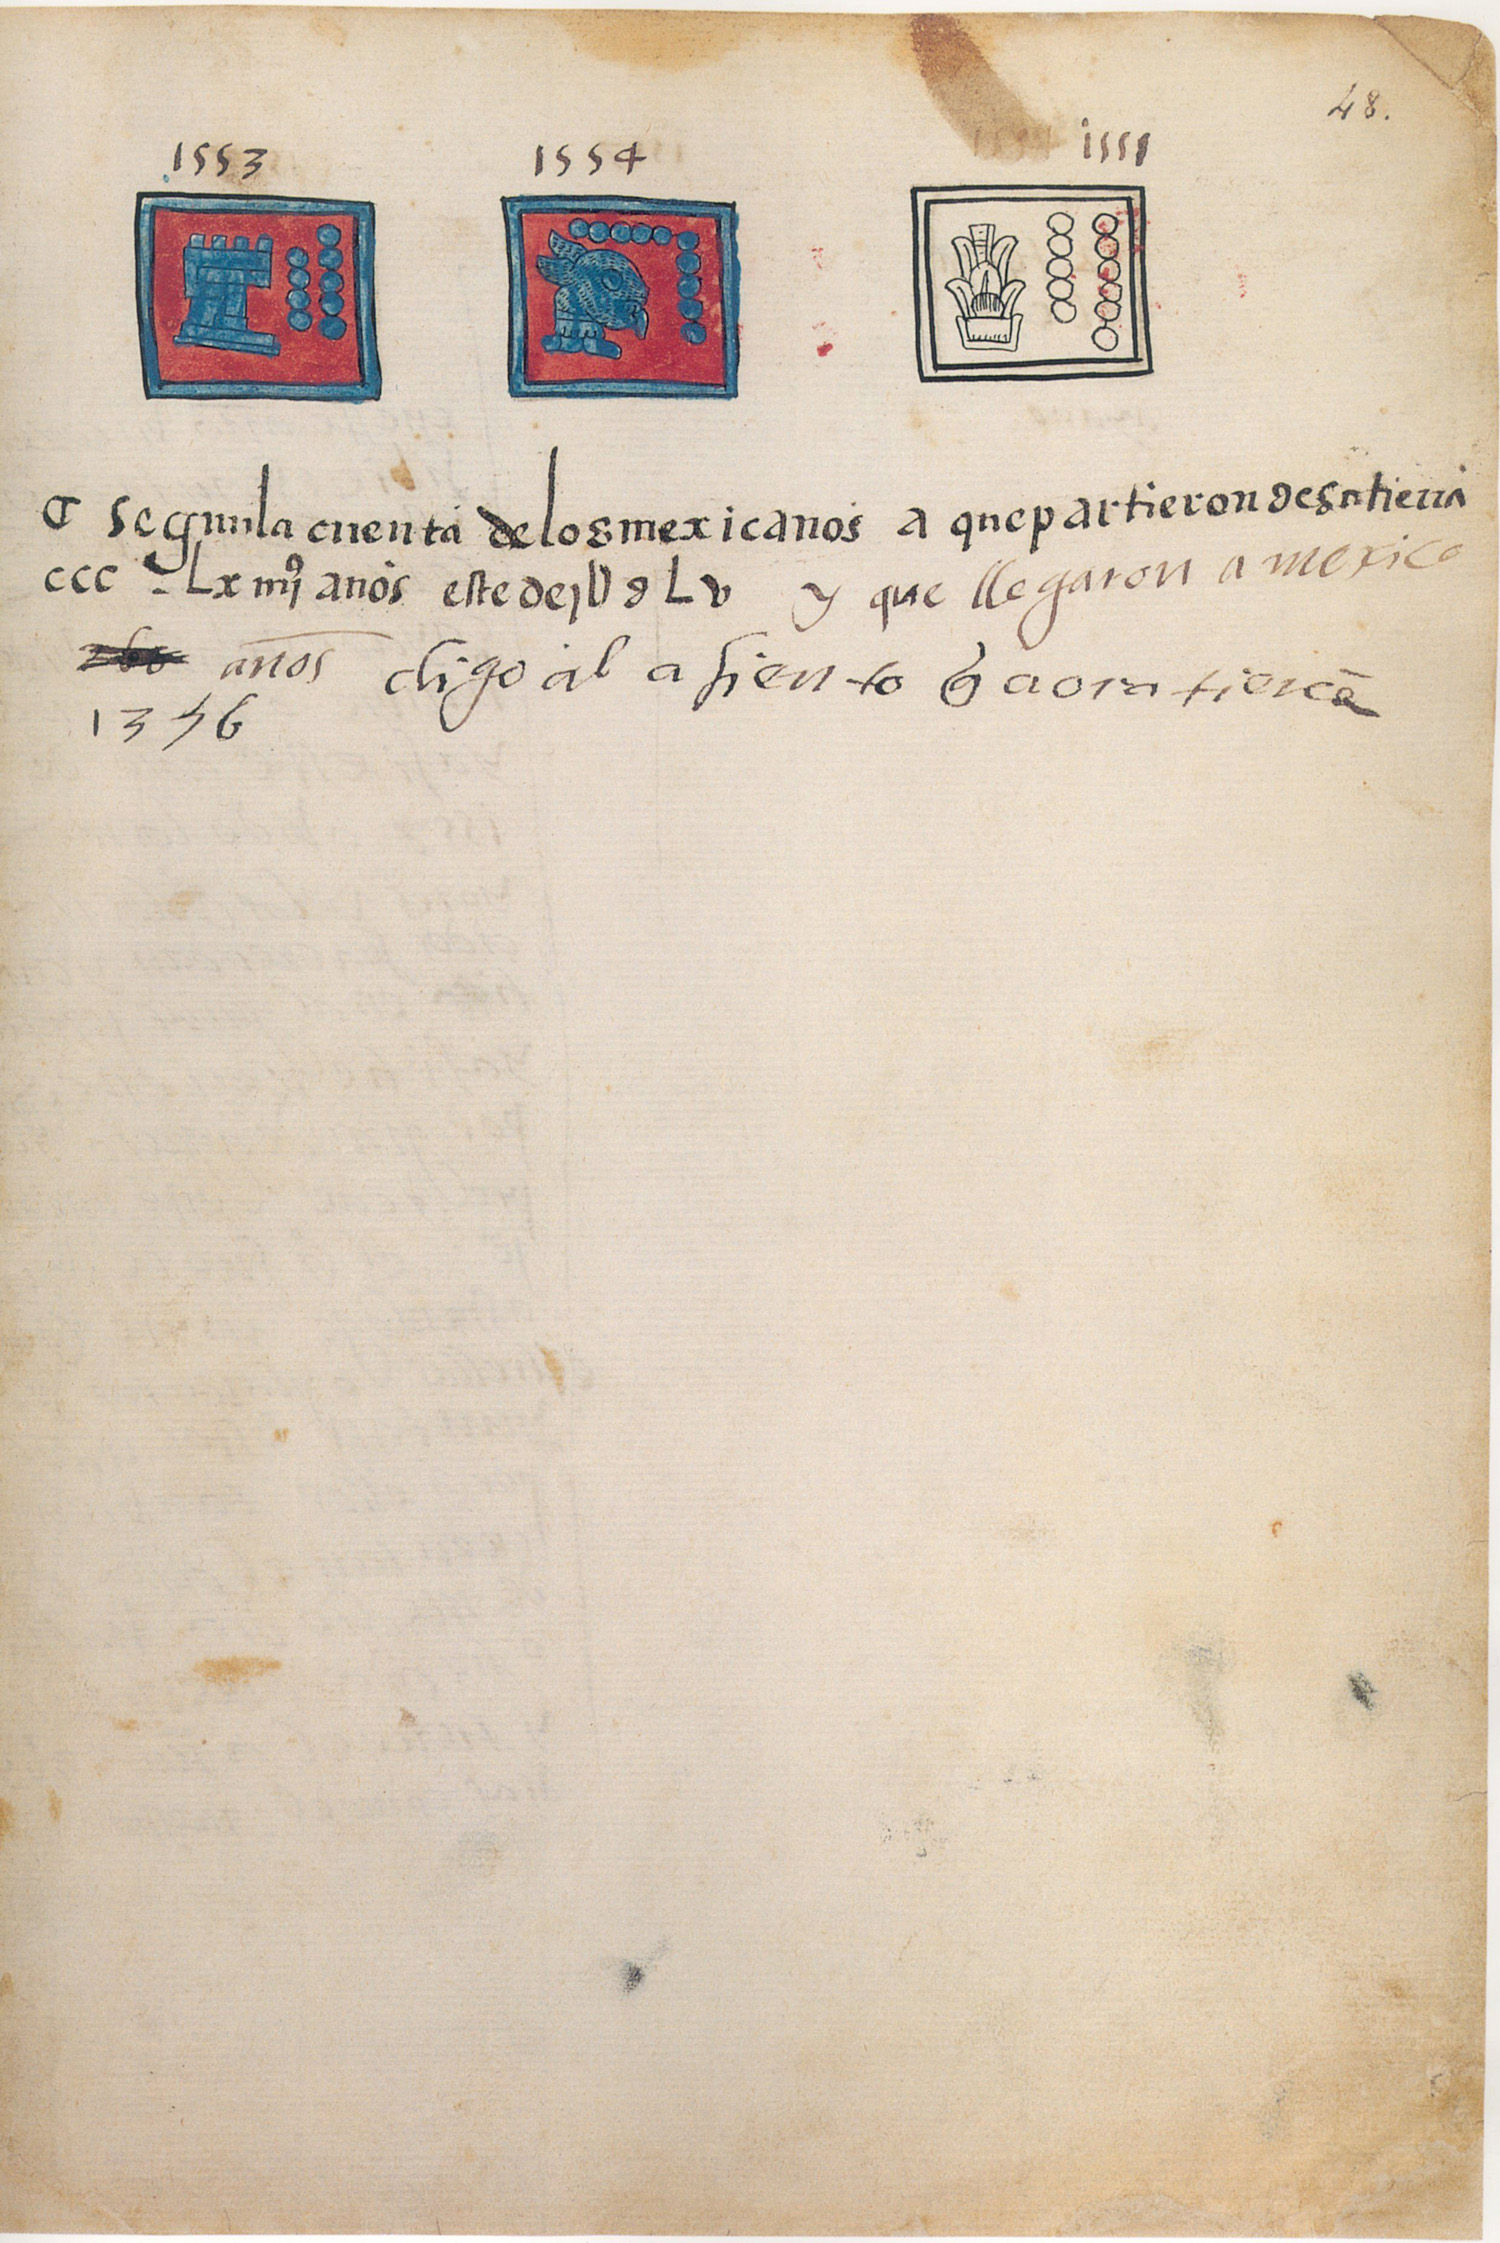 48.
1553 1554 1555
segun la cuenta de los mexicanos a que partieron de su tierra
ccc Lx iiijº años este de j V d L v y que llegaron a mexico
años digo al asiento q̃ aora tienẽ
1356